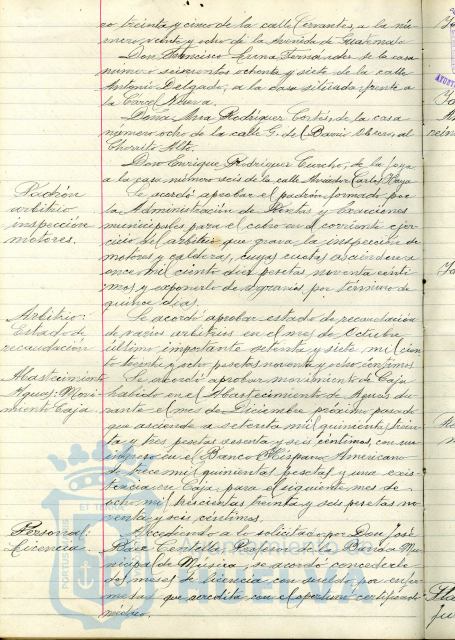 ro treinta y cinco de la calle Cervantes, a la nú-
mero veinte y ocho de la Avenida de Guatemala
Don Francisco Luna Fernández de la casa
número seiscientos ochenta y siete de la calle
Antonio Delgado, a la casa situada frente a
la Carcel Nueva.
Doña Ana Rodríguez Cortés, de la casa
número ocho de la calle G. del Barrio Obrero, al
Chorito Alto.
Don Enrique Rodríguez de la suya
a la casa número seis de la calle Aviador Carlos Haya
Padrón
arbitrio
inspección
motores.
Se acordó aprobar el padrón formado por
la Administración de Rentas y Exacciones
municipales para el cobro en el corriente ejer-
cicio del arbitrio que grava la inspección de
motores y calderas, cuyas cuotas ascienden a
once mil ciento diez pesetas noventa cénti-
mos y exponerlo de agravios por término de
quince días.
Arbitrio:
Estado de
recaudación
Se acordó aprobar estado de recaudación
de varios arbitrios en el mes de Octubre
último importante setenta y siete mil cien-
to treinta y ocho pesetas noventa y ocho céntimos
Abastecimiento
Aguas: Movi-
miento Caja.
Se acordó aprobar movimiento de Caja
habido en el Abastecimiento de Aguas du-
rante el mes de Diciembre próximo pasado
que asciende a setenta mil quinientas trein-
ta y tres pesetas sesenta y seis céntimos, con un
ingreso en el Banco Hispano Americano
de trece mil quinientas pesetas y una exis-
tencia en Caja para el siguiente mes de
ocho mil trescientas treinta y seis pesetas no-
venta y seis céntimos.
Personal:
Licencia.
Accediendo a lo solicitado por Don José
Ruiz Centella, Profesor de la Banda Mu-
nicipal de Música, se acordó concederle
dos meses de licencia con sueldo por enfer-
medad que acredita con el oportuno certificado
médico.